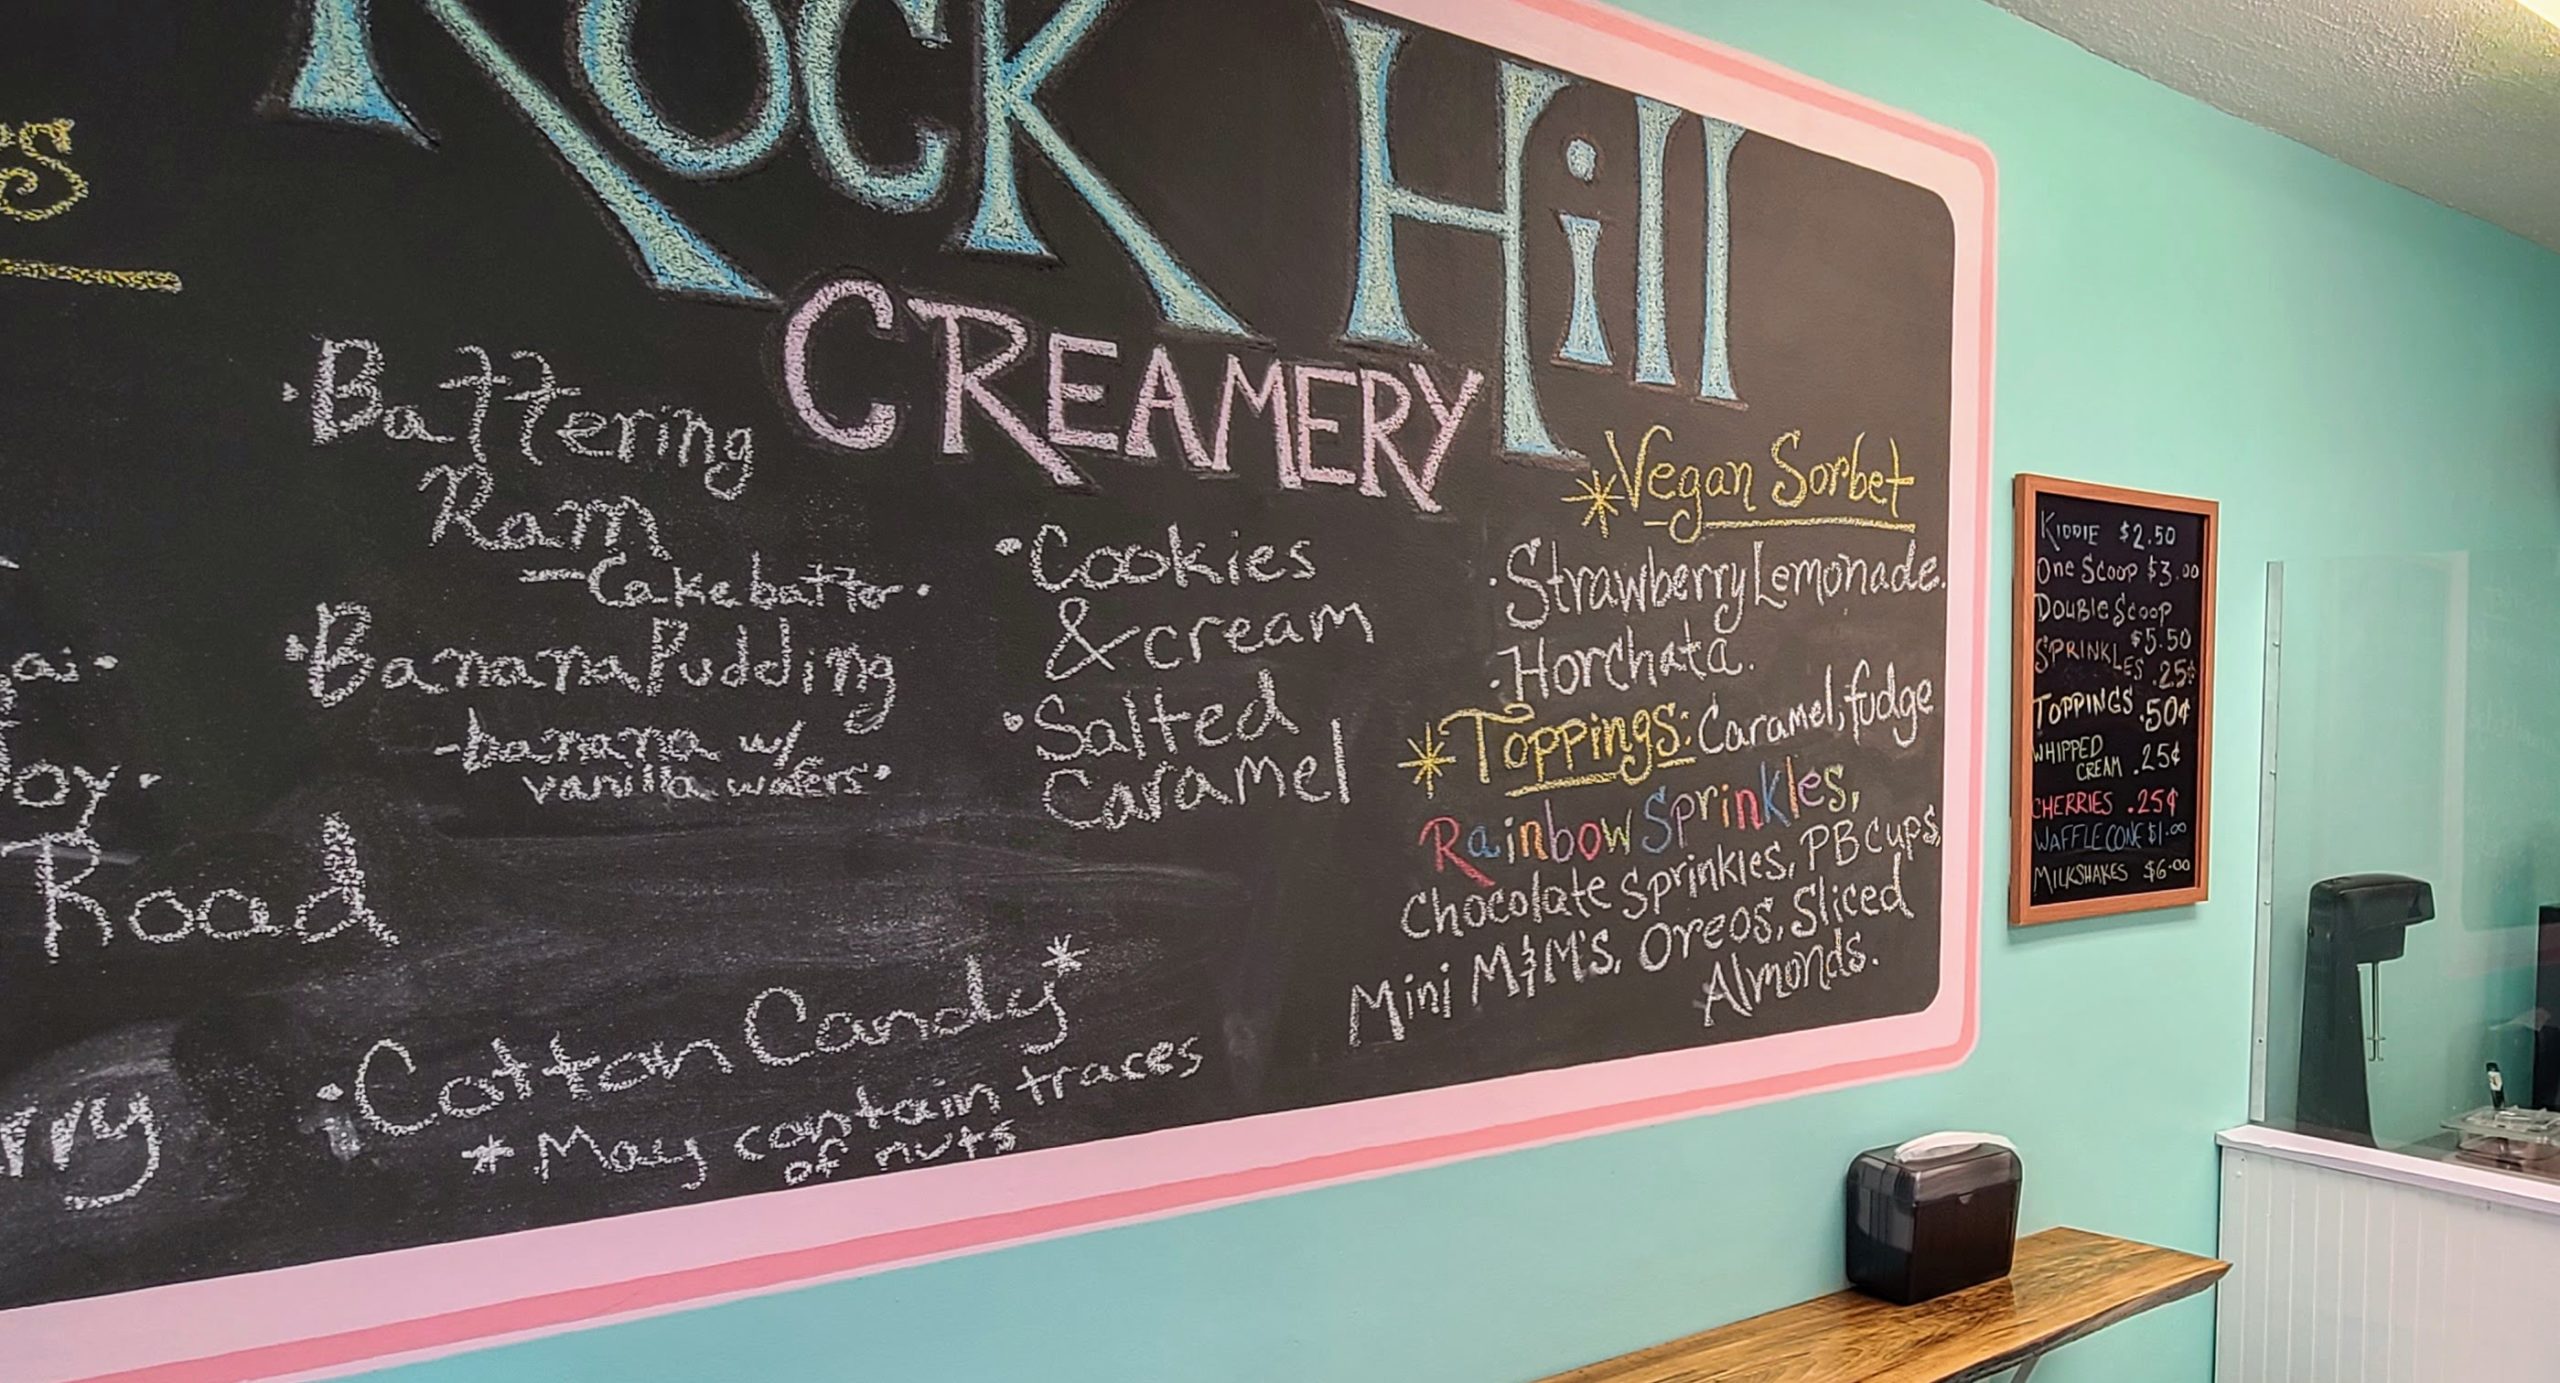 Rock Hill
CREAMERY
Road
• Battering
Ram
- Cake batter •
• Banana Pudding
- banana w/
vanilla wafers •
• Cotton Candy *
* May contain traces
of nuts
• Cookies
& cream
• Salted
Caramel
* Vegan Sorbet
• Strawberry Lemonade.
• Horchata.
* Toppings: Caramel, fudge
Rainbow Sprinkles,
Chocolate Sprinkles, PB Cups,
Mini M&M's, Oreos, Sliced
Almonds.
KIDDIE $2.50
One Scoop $3.00
Double Scoop
$5.50
SPRINKLES .25¢
TOPPINGS .50¢
WHIPPED
CREAM .25¢
CHERRIES .25¢
WAFFLE CONE $1.00
MILKSHAKES $6.00